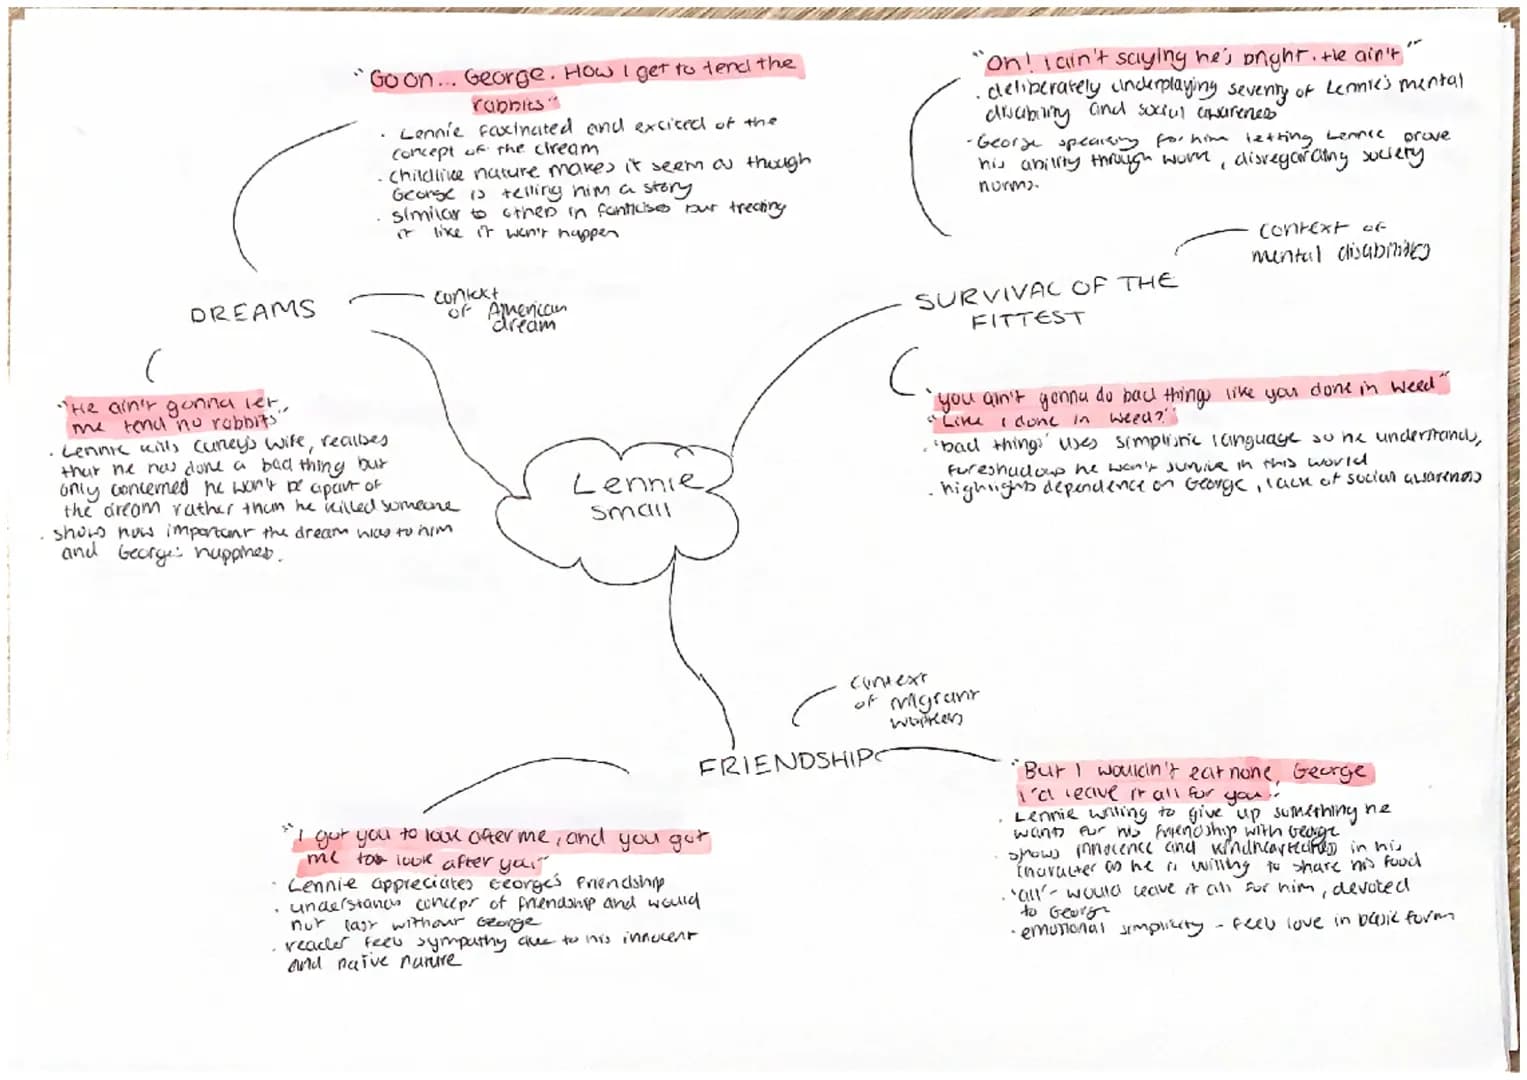 "Go on... George. How I get to tend the
rabbits"
· Lennie fascinated and excited of the
concept of the dream
· childlike nature makes it seem as though
George is telling him a story
· similar to others in fanticises but treating
it like it won't happen
DREAMS
context
of American
dream
"He ain't gonna let
me tend no rabbits"
· Lennie kills Curley's wife, realises
that he has done a bad thing but
only concerned he won't be apart of
the dream rather than he killed someone
· shows how important the dream was to him
and George's happiness.
"Oh! I ain't saying he's bright. He ain't"
· deliberately underplaying severity of Lennie's mental
disability and social awareness
· George speaking for him letting Lennie prove
his ability through work, disregarding society
norms.
context of
mental disabilities
SURVIVAL OF THE
FITTEST
"you ain't gonna do bad things like you done in Weed"
"Like I done in Weed?"
· 'bad things' uses simplistic language so he understands,
foreshadows he won't survive in this world
· highlights dependence on George, lack of social awareness
Lennie
small
context
of migrant
workers
FRIENDSHIP
"I got you to look after me, and you got
me to look after you"
· Lennie appreciates George's friendship
· understands concept of friendship and would
not last without George
· reader feels sympathy due to his innocent
and naive nature
"But I wouldn't eat none, George
I'd leave it all for you."
· Lennie willing to give up something he
wants for his friendship with George
· shows innocence and kindheartedness in his
character as he is willing to share his food
· 'all' - would leave it all for him, devoted
to George
· emotional simplicity - feels love in basic form